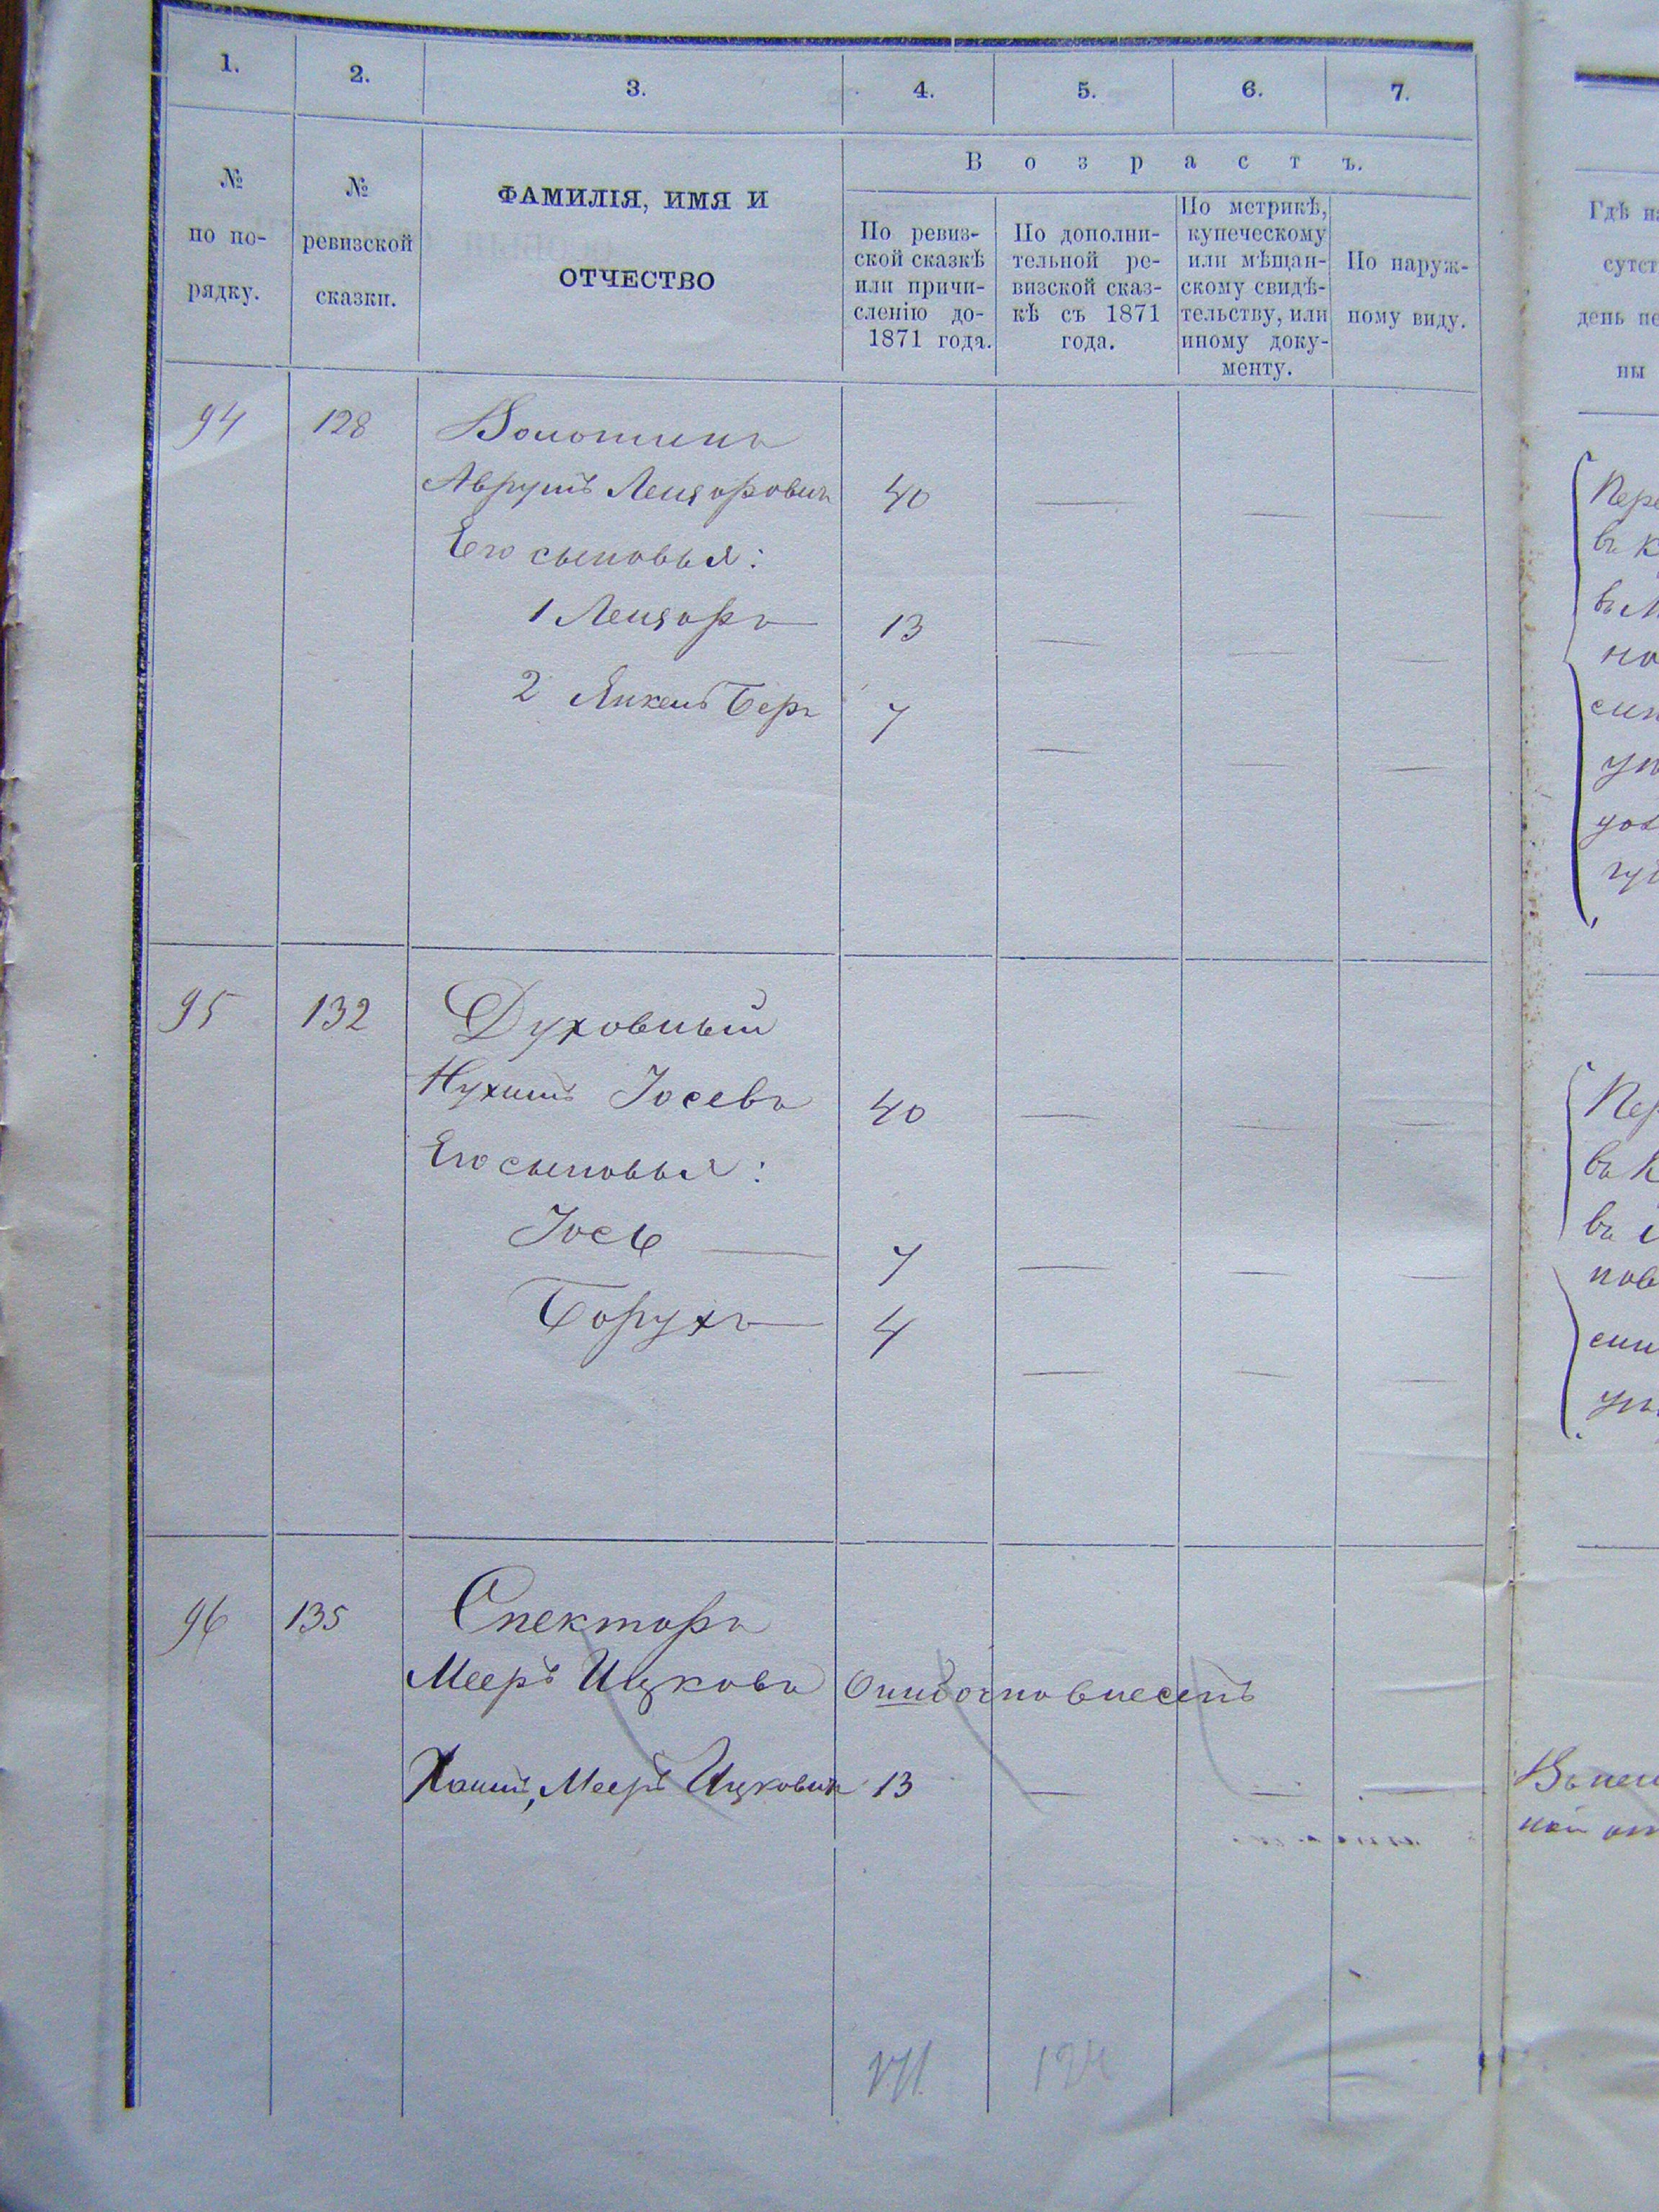 1. 2. 3. 4. 5. 6. 7.
№ по по-рядку.
№ ревизской сказки.
ФАМИЛІЯ, ИМЯ И
ОТЧЕСТВО
Возрастъ.
По ревиз-
ской сказкѣ
или причи-
сленію до-
1871 года.
По дополни-
тельной ре-
визской сказ-
кѣ съ 1871
года.
По метрикѣ,
купеческому
или мѣщан-
скому свидѣ-
тельству, или
иному доку-
менту.
По наруж-
ному виду.
94 128
Аврумъ Лейзоровичъ 40 — — —
Его сыновья:
1 Лейзоръ — 13 — — —
2 Янкель Беръ 7 — — —
95 132 Духовный
Нухимъ Іосевъ 40 — — —
Его сыновья:
Іось — 7 — — —
Борухъ — 4 — — —
96 135 Спекторъ
Мееръ Ицковъ Ошибочно внесенъ
Хаимъ, Мееръ Ицковичъ 13 — — —
Гдѣ
день
ны